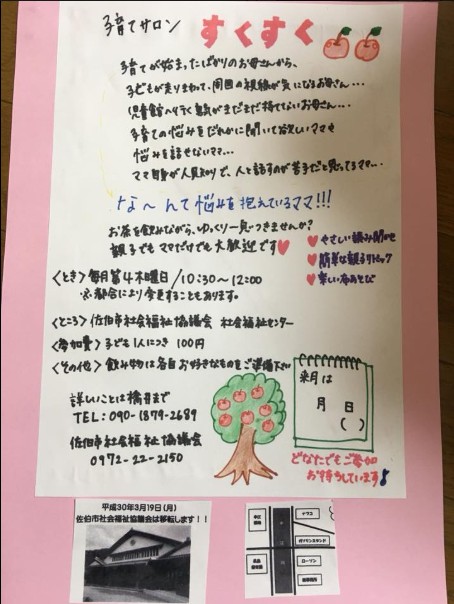 子育てサロン すくすく
子育てが始まったばかりのお母さんから、
子どもが走りまわって、周囲の視線が気になるお母さん…
児童館へ行く勇気がまだまだ持てないお母さん…
子育ての悩みをだれかに聞いて欲しいママや
悩みを話せないママ…
ママ自身が人見知りで、人と話すのが苦手だと思ってるママ…
な〜んて悩みを抱えているママ!!!
お茶を飲みながら、ゆっくり一息つきませんか?
親子でもママだけでも大歓迎です♥
♥やさしい読み聞かせ
♥簡単な親子リトミック
♥楽しい布あそび
<とき>毎月第4木曜日/10:30〜12:00
※都合により変更することもあります。
<ところ>佐伯市社会福祉協議会 社会福祉センター
<参加費>子ども1人につき 100円
<その他>飲み物は各自お好きなものをご準備下さい
詳しいことは橋井まで
TEL:090-1879-2689
佐伯市社会福祉協議会
0972-22-2150
来月は
月 日
( )
どなたでもご参加
お待ちしています♪
平成30年3月19日(月)
佐伯市社会福祉協議会は移転します!!
ローソン